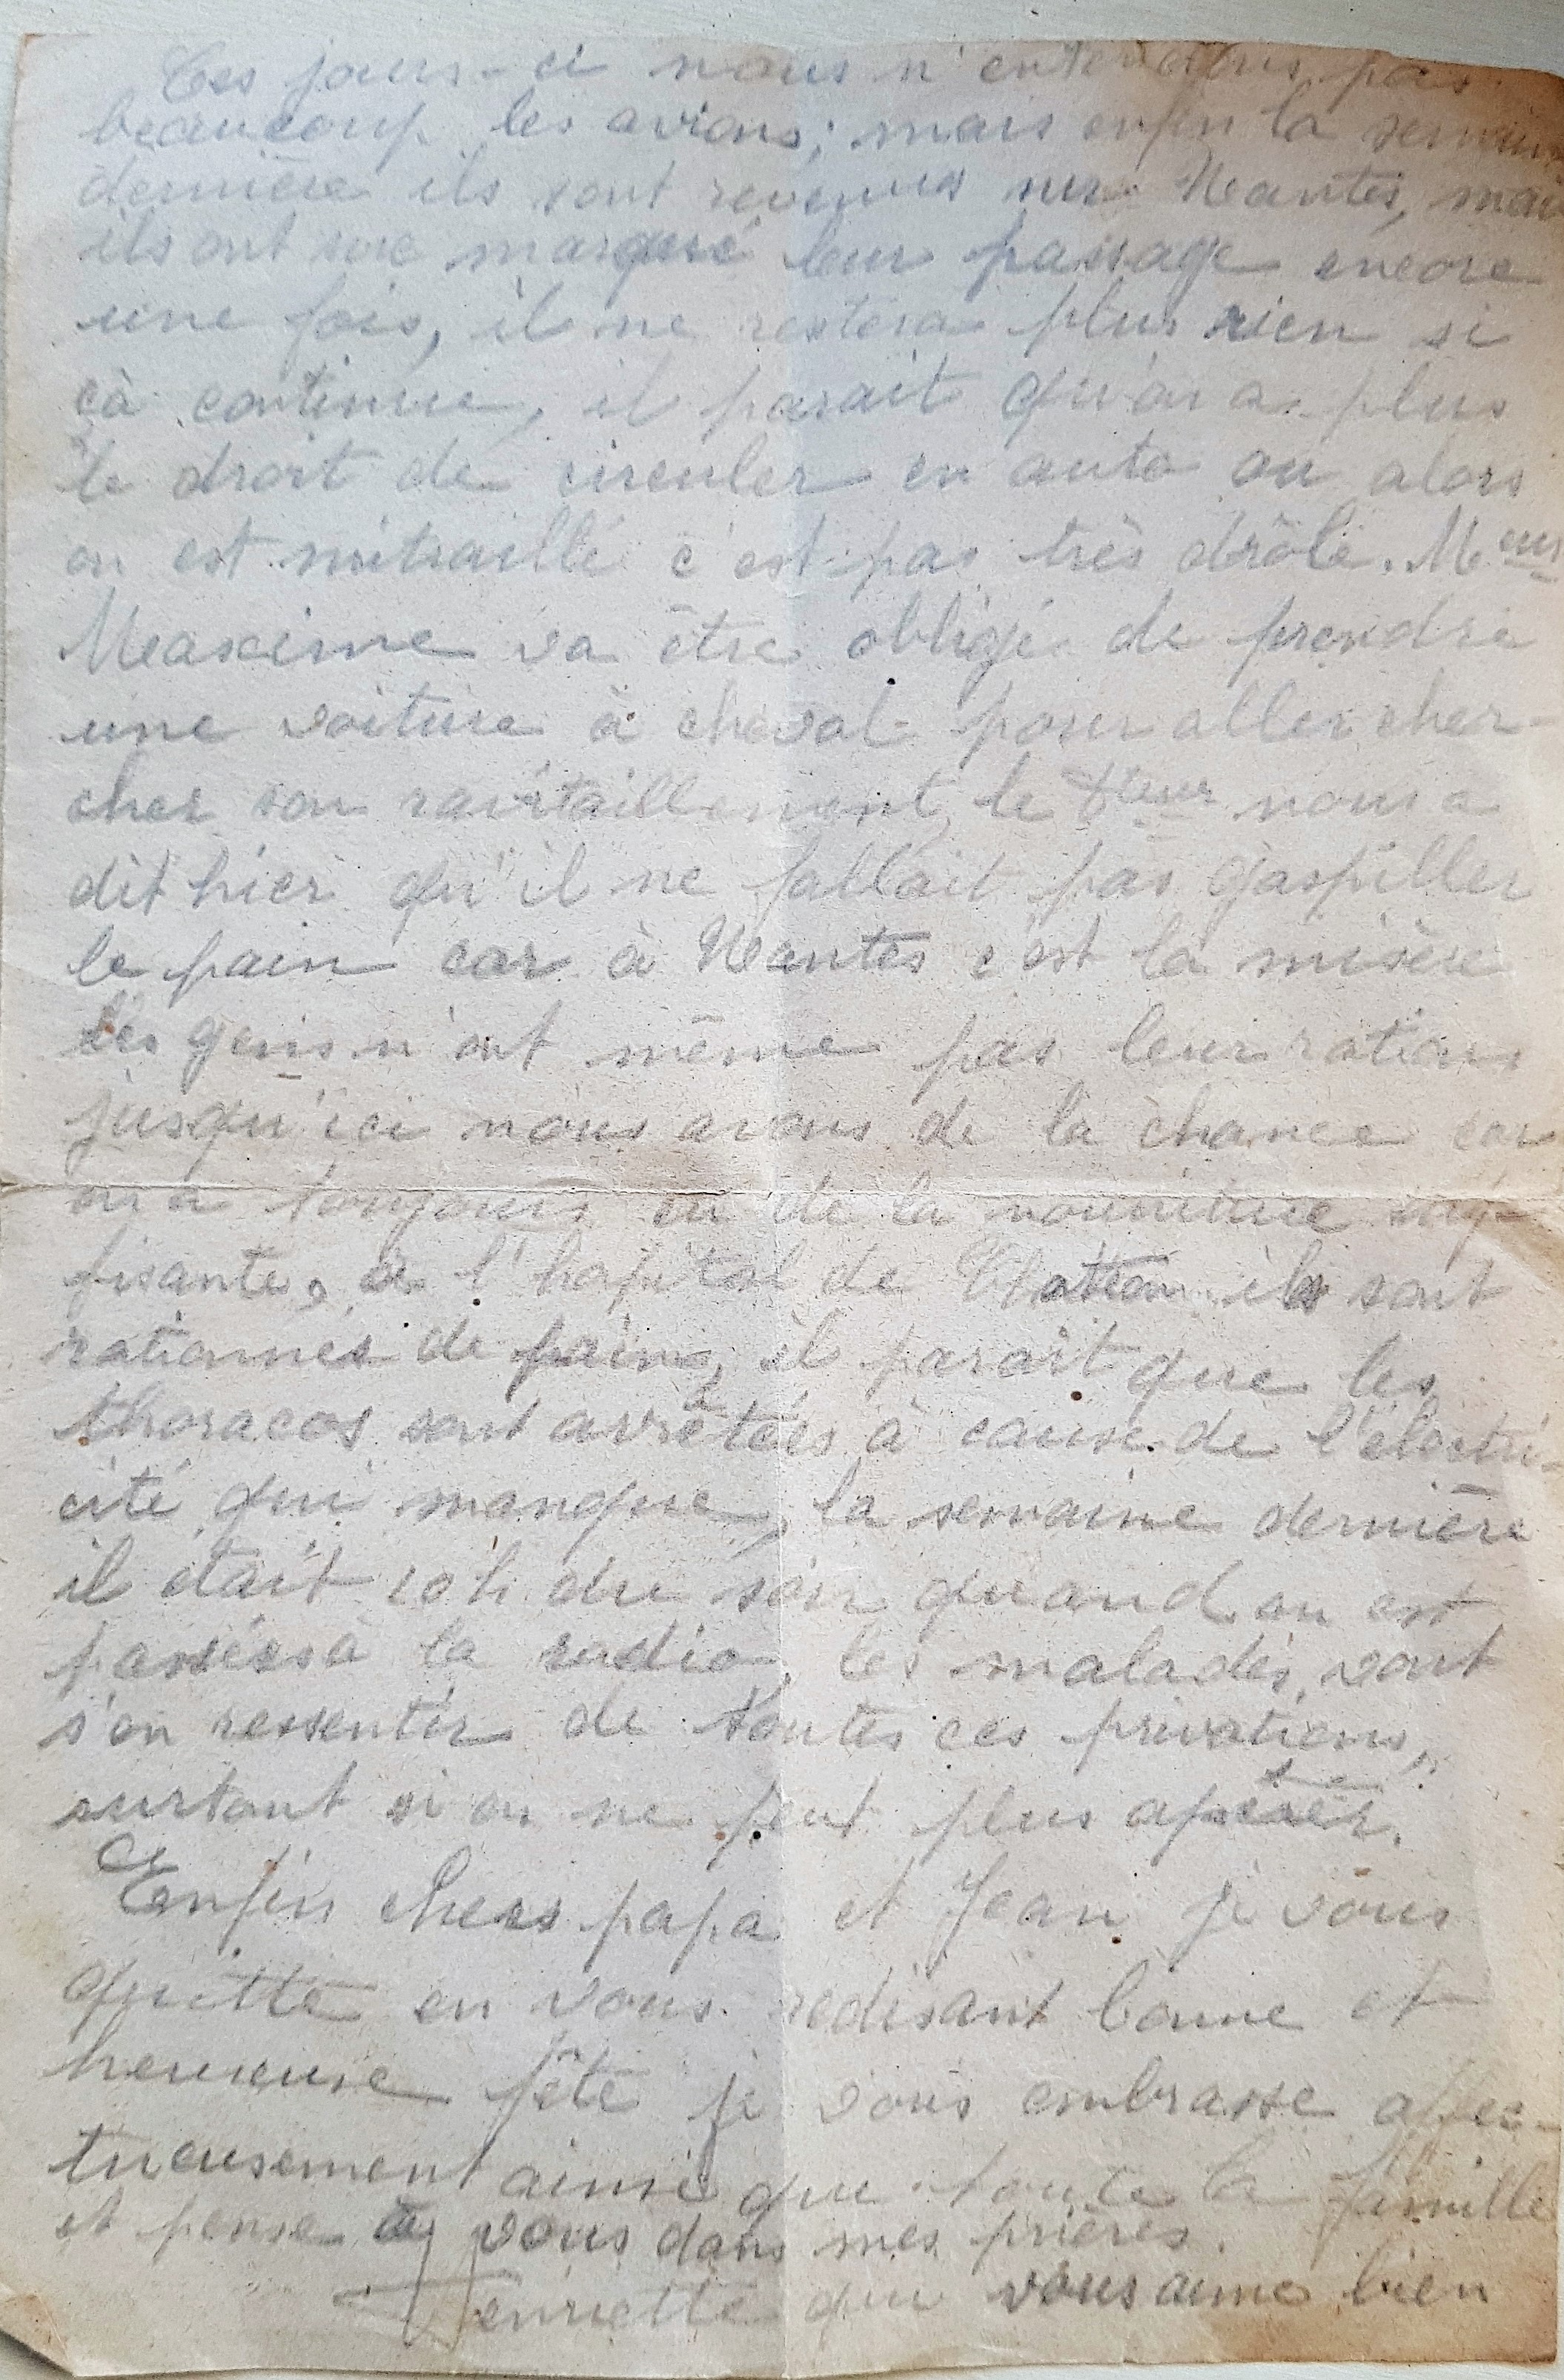 Ces jours-ci nous n'entendons pas
beaucoup les avions; mais enfin la semaine
dernière ils sont revenus sur Nantes, mais
ils ont marqué leur passage encore
une fois, il ne restera plus rien si
çà continue, il parait qu'on a plus
le droit de circuler en auto ou alors
on est mitraillé c'est pas très drôle. Meur
Maxime va être obligé de prendre
une voiture à cheval pour aller cher-
cher son ravitaillement, le nous a
dit hier qu'il ne fallait pas gaspiller
le pain car à Nantes c'est la misère
les gens n'ont même pas leur ration
jusqu'ici nous avons de la chance car
on a toujours eu de la nourriture suf-
fisante, à l'hopital de ils sont
rationnés de pain, il parait que les
thoracos sont arrêtées à cause de l'électri-
cité qui manque, la semaine dernière
il était 10 h. du soir quand on est
passées à la radio, les malades vont
s'en ressentir de toutes ces privations,
surtout si on ne peut plus opérer.
Enfin chers papa et Jean je vous
quitte en vous redisant bonne et
heureuse fête je vous embrasse affec-
tueusement ainsi que toute la famille
et pense à vous dans mes prières.
Henriette qui vous aime bien